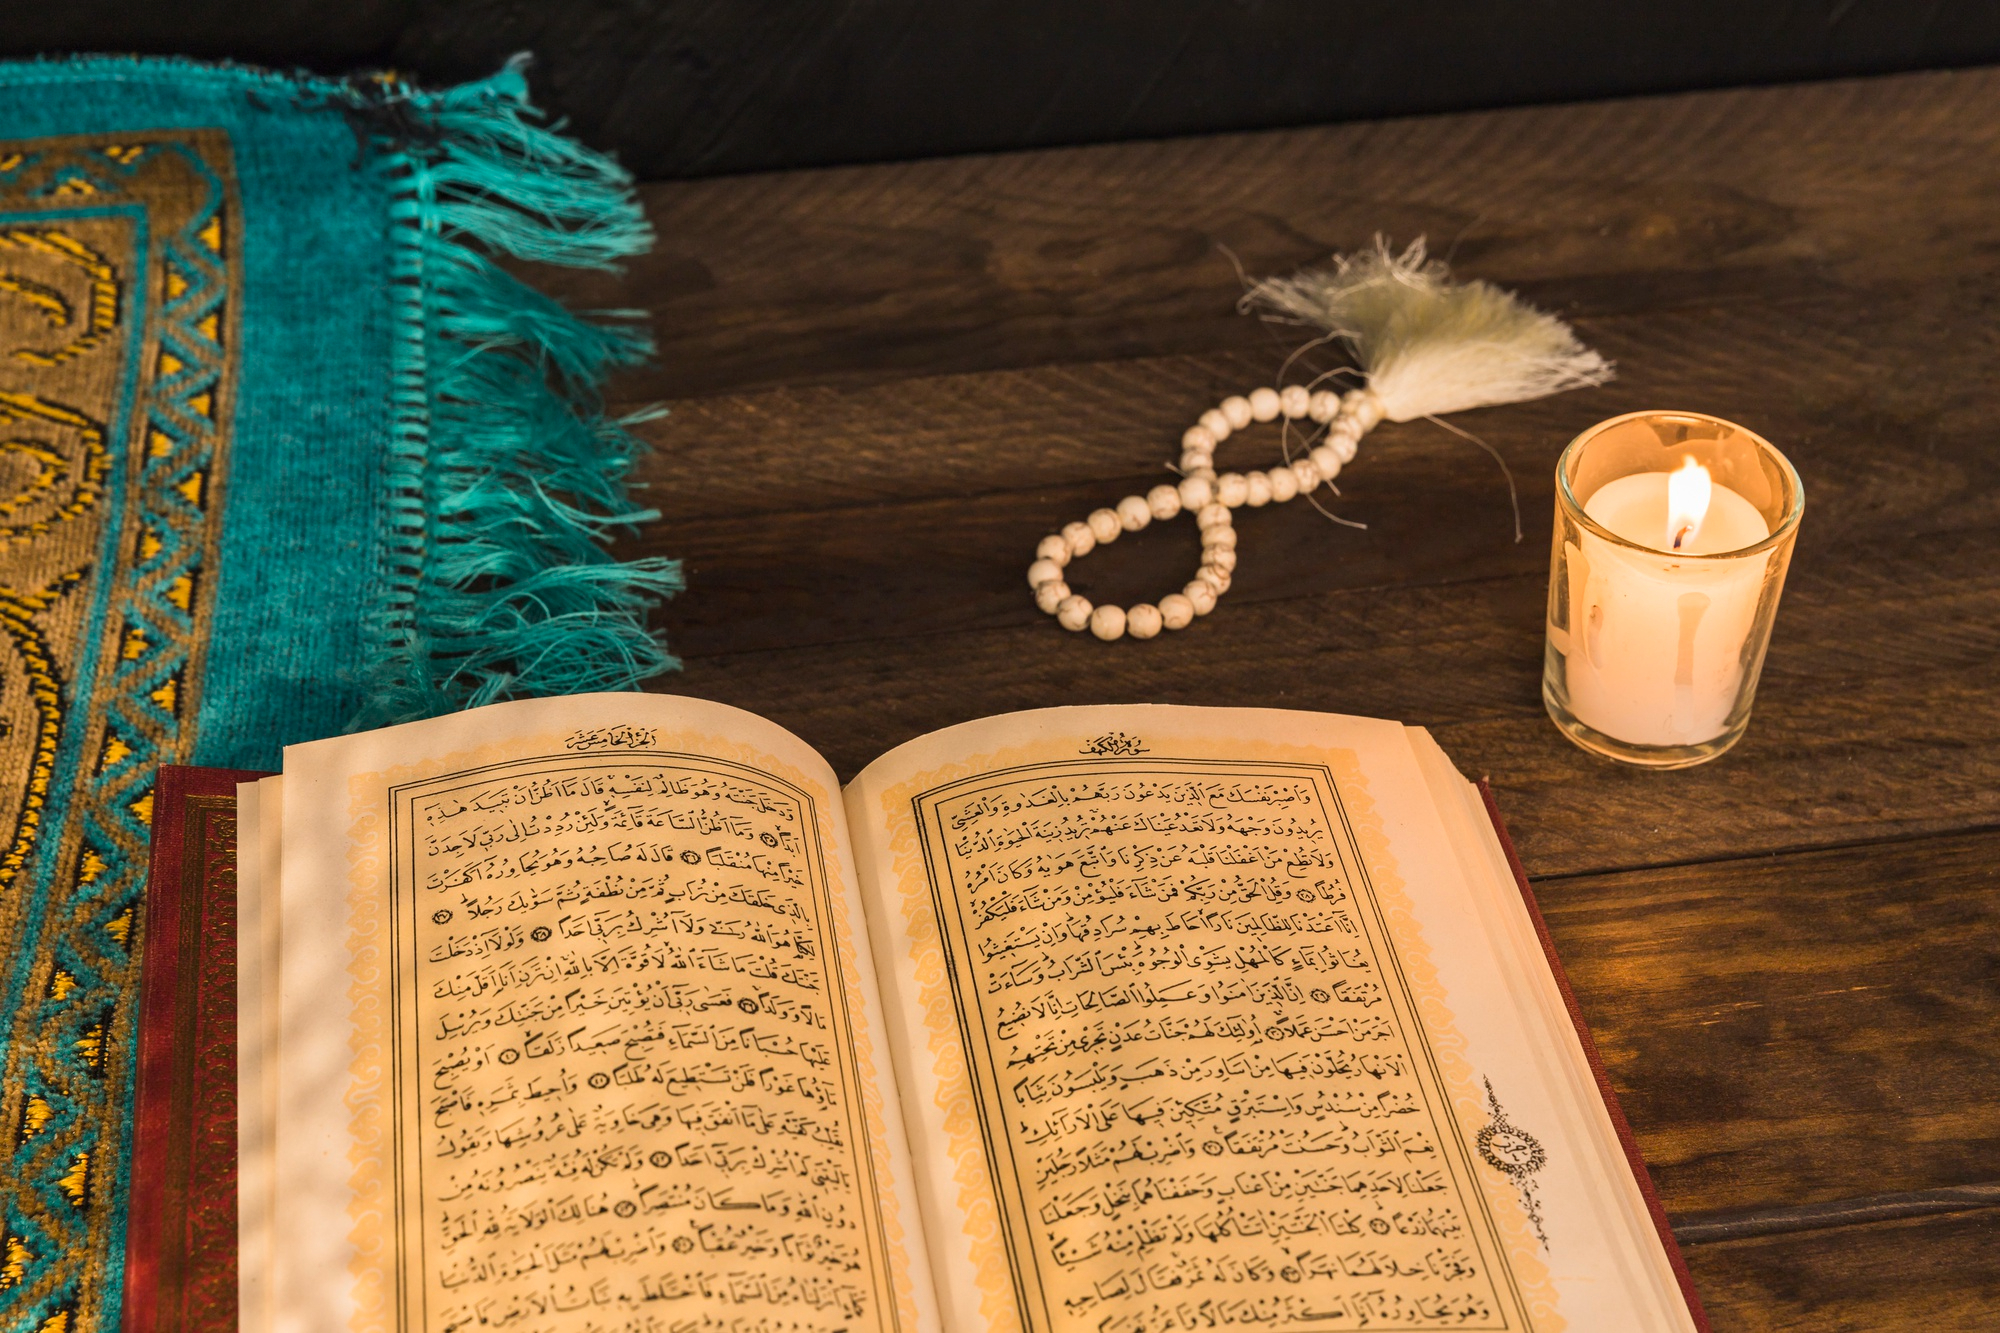 سورة الكهف
وَاصْبِرْ نَفْسَكَ مَعَ الَّذِينَ يَدْعُونَ رَبَّهُمْ بِالْغَدٰوةِ وَالْعَشِيِّ
يُرِيدُونَ وَجْهَهُ وَلَا تَعْدُ عَيْنَاكَ عَنْهُمْ تُرِيدُ زِينَةَ الْحَيٰوةِ الدُّنْيَا
وَلَا تُطِعْ مَنْ اَغْفَلْنَا قَلْبَهُ عَنْ ذِكْرِنَا وَاتَّبَعَ هَوٰيهُ وَكَانَ اَمْرُهُ
فُرُطًا ﴿٢٨﴾ وَقُلِ الْحَقُّ مِنْ رَبِّكُمْ فَمَنْ شَاءَ فَلْيُؤْمِنْ وَمَنْ شَاءَ فَلْيَكْفُرْ
اِنَّا اَعْتَدْنَا لِلظَّالِمِينَ نَارًا اَحَاطَ بِهِمْ سُرَادِقُهَا وَاِنْ يَسْتَغِيثُوا
يُغَاثُوا بِمَاءٍ كَالْمُهْلِ يَشْوِي الْوُجُوهَ بِئْسَ الشَّرَابُ وَسَاءَتْ
مُرْتَفَقًا ﴿٢٩﴾ اِنَّ الَّذِينَ اٰمَنُوا وَعَمِلُوا الصَّالِحَاتِ اِنَّا لَا نُضِيعُ
اَجْرَ مَنْ اَحْسَنَ عَمَلًا ﴿٣٠﴾ اُولٰئِكَ لَهُمْ جَنَّاتُ عَدْنٍ تَجْرِي مِنْ تَحْتِهِمُ
الْاَنْهَارُ يُحَلَّوْنَ فِيهَا مِنْ اَسَاوِرَ مِنْ ذَهَبٍ وَيَلْبَسُونَ ثِيَابًا
خُضْرًا مِنْ سُنْدُسٍ وَاِسْتَبْرَقٍ مُتَّكِئِينَ فِيهَا عَلَى الْاَرَائِكِ
نِعْمَ الثَّوَابُ وَحَسُنَتْ مُرْتَفَقًا ﴿٣١﴾ وَاضْرِبْ لَهُمْ مَثَلًا رَجُلَيْنِ
جَعَلْنَا لِاَحَدِهِمَا جَنَّتَيْنِ مِنْ اَعْنَابٍ وَحَفَفْنَاهُمَا بِنَخْلٍ وَجَعَلْنَا
بَيْنَهُمَا زَرْعًا ﴿٣٢﴾ كِلْتَا الْجَنَّتَيْنِ اٰتَتْ اُكُلَهَا وَلَمْ تَظْلِمْ مِنْهُ شَيْئًا
وَفَجَّرْنَا خِلَالَهُمَا نَهَرًا ﴿٣٣﴾ وَكَانَ لَهُ ثَمَرٌ فَقَالَ لِصَاحِبِهِ
وَهُوَ يُحَاوِرُهُ اَنَا اَكْثَرُ مِنْكَ مَالًا وَاَعَزُّ نَفَرًا
حزب
الجزء الخامس عشر
وَدَخَلَ جَنَّتَهُ وَهُوَ ظَالِمٌ لِنَفْسِهِ قَالَ مَا اَظُنُّ اَنْ تَبِيدَ هٰذِهِ
اَبَدًا ﴿٣٥﴾ وَمَا اَظُنُّ السَّاعَةَ قَائِمَةً وَلَئِنْ رُدِدْتُ اِلٰى رَبِّي لَاَجِدَنَّ
خَيْرًا مِنْهَا مُنْقَلَبًا ﴿٣٦﴾ قَالَ لَهُ صَاحِبُهُ وَهُوَ يُحَاوِرُهُ اَكَفَرْتَ
بِالَّذِي خَلَقَكَ مِنْ تُرَابٍ ثُمَّ مِنْ نُطْفَةٍ ثُمَّ سَوّٰيكَ رَجُلًا ﴿٣٧﴾
لٰكِنَّا هُوَ اللّٰهُ رَبِّي وَلَا اُشْرِكُ بِرَبِّي اَحَدًا ﴿٣٨﴾ وَلَوْلَا اِذْ دَخَلْتَ
جَنَّتَكَ قُلْتَ مَا شَاءَ اللّٰهُ لَا قُوَّةَ اِلَّا بِاللّٰهِ اِنْ تَرَنِ اَنَا اَقَلَّ مِنْكَ
مَالًا وَوَلَدًا ﴿٣٩﴾ فَعَسٰى رَبِّي اَنْ يُؤْتِيَنِ خَيْرًا مِنْ جَنَّتِكَ وَيُرْسِلَ
عَلَيْهَا حُسْبَانًا مِنَ السَّمَاءِ فَتُصْبِحَ صَعِيدًا زَلَقًا ﴿٤٠﴾ اَوْ يُصْبِحَ
مَاؤُهَا غَوْرًا فَلَنْ تَسْتَطِيعَ لَهُ طَلَبًا ﴿٤١﴾ وَاُحِيطَ بِثَمَرِهِ فَاَصْبَحَ
يُقَلِّبُ كَفَّيْهِ عَلٰى مَا اَنْفَقَ فِيهَا وَهِيَ خَاوِيَةٌ عَلٰى عُرُوشِهَا وَيَقُولُ
يَا لَيْتَنِي لَمْ اُشْرِكْ بِرَبِّي اَحَدًا ﴿٤٢﴾ وَلَمْ تَكُنْ لَهُ فِئَةٌ يَنْصُرُونَهُ مِنْ
دُونِ اللّٰهِ وَمَا كَانَ مُنْتَصِرًا ﴿٤٣﴾ هُنَالِكَ الْوَلَايَةُ لِلّٰهِ الْحَقِّ
هُوَ خَيْرٌ ثَوَابًا وَخَيْرٌ عُقْبًا ﴿٤٤﴾ وَاضْرِبْ لَهُمْ مَثَلَ الْحَيٰوةِ الدُّنْيَا
كَمَاءٍ اَنْزَلْنَاهُ مِنَ السَّمَاءِ فَاخْتَلَطَ بِهِ نَبَاتُ الْاَرْضِ فَاَصْبَحَ